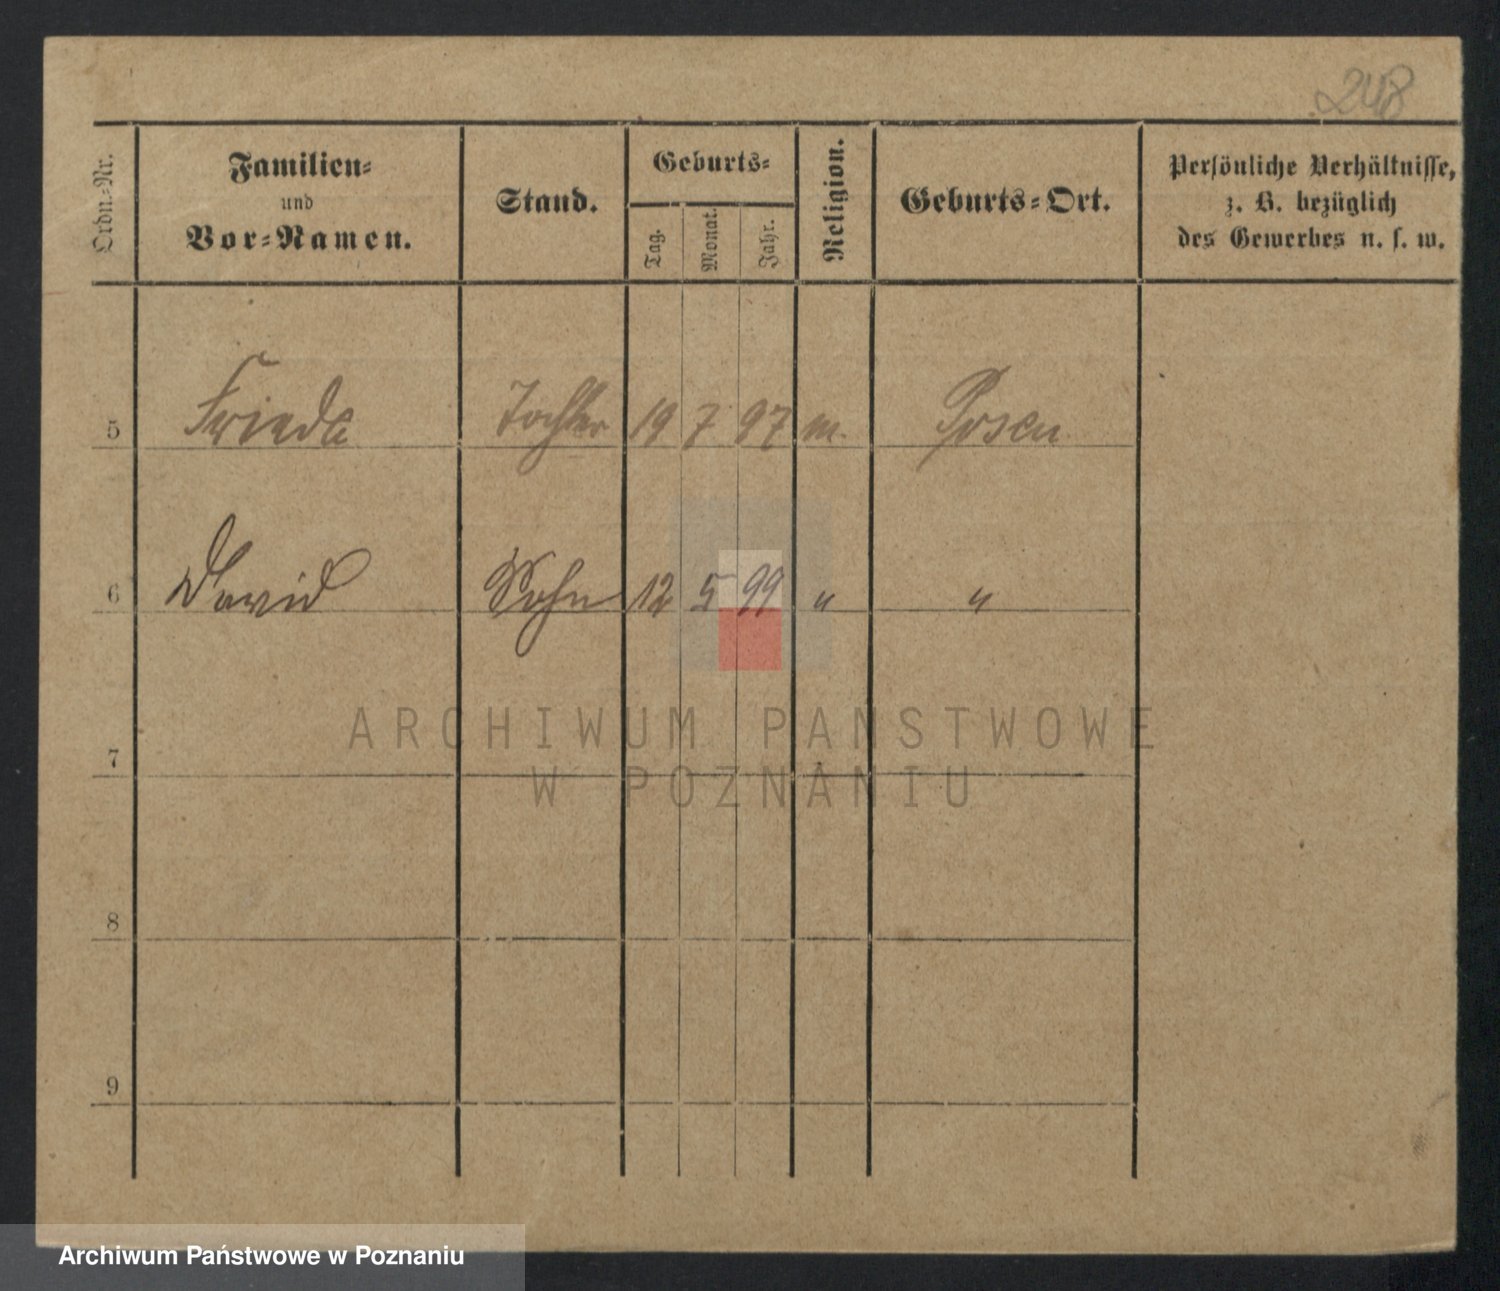 248
Ordn.-Nr. Familien- und Vor-Namen. Stand. Geburts- Tag. Monat. Jahr. Religion. Geburts-Ort. Persönliche Verhältnisse, z. B. bezüglich des Gewerbes u. s. w.
5 Frieda Tochter 19 7 97 m. Posen
6 David Sohn 12 5 99 " "
7
8
9
ARCHIWUM PAŃSTWOWE
W POZNANIU
Archiwum Państwowe w Poznaniu